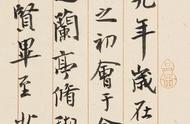 九年歲在
之初會于
之蘭亭脩禊
賢畢至